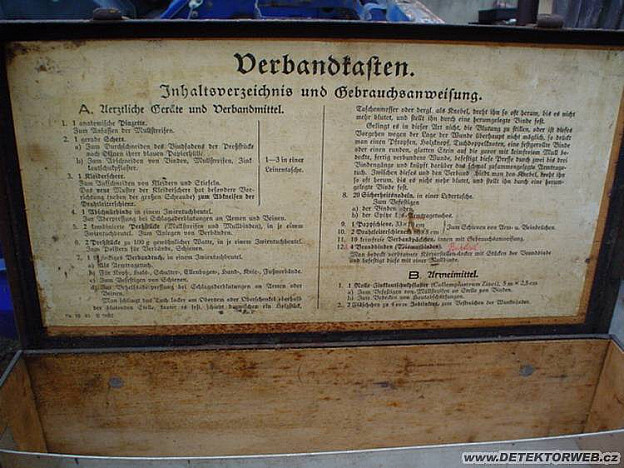 Verbandkasten.
Inhaltsverzeichnis und Gebrauchsanweisung.
A. Aerztliche Geräte und Verbandmittel.
1. 1 anatomische Pinzette.
Zum Anfassen der Mullstreifen.
2. 1 gerade Schere.
a) Zum Durchschneiden des Bindfadens der Preßstücke
nach Öffnen ihrer blauen Papierhülle.
b) Zum Abschneiden von Binden, Mullstreifen, Zink
kautschukpflaster.
1—3 in einer
Leinentasche.
3. 1 Kleiderschere.
Zum Aufschneiden von Kleidern und Stiefeln.
Das neue Muster der Kleiderschere hat besondere Vor-
richtung (neben der großen Schraube) zum Abkneifen der
Drahtschienen.
4. 1 Abschnürbinde in einem Zwirntuchbeutel.
Zur Abpressung bei Schlagaderblutungen an Armen und Beinen.
5. 2 kombinierte Preßstücke (Mullstreifen und Mullbinden), in je einem
Zwirntuchbeutel. Zum Anlegen von Verbänden.
6. 2 Preßstücke zu 100 g gewöhnlicher Watte, in je einem Zwirntuchbeutel.
Zum Polstern der Schienen.
7. 1 eckiges Verbandtuch, in einem Zwirntuchbeutel.
a) Als Armtragetuch.
b) Für Kopf-, Hals-, Schulter-, Ellenbogen-, Hand-, Knie-, Fußverbände.
c) Zum Befestigen von Schienen.
d) Zur Behelfsabpressung bei Schlagaderblutungen an Armen und
Beinen.
Man schlingt das Tuch locker am Oberarm oder Oberschenkel oberhalb
der blutenden Stelle, knotet es fest, schiebt dazwischen ein Holzstück,
Taschenmesser oder dergl. als Knebel, dreht ihn so oft herum, bis es nicht
mehr blutet, und stellt ihn durch eine herumgelegte Binde fest.
Gelingt es in dieser Art nicht, die Blutung zu stillen, oder ist dieses
Vorgehen wegen der Lage der Wunde überhaupt nicht möglich, so drückt
man einen Pfropfen, Holzknopf, Tuchdopfknoten, eine festgerollte Binde
oder einen runden, glatten Stein auf die zuvor mit keimfreiem Mull be-
deckte, fertig verbundene Wunde, befestigt diese Presse durch zwei bis drei
Bindengänge und knüpft darüber das locker zusammengelegte Armtrage-
tuch. Zwischen dieses und den Verband schiebt man den Knebel, dreht ihn
so oft herum, bis es nicht mehr blutet, und stellt ihn durch eine herum-
gelegte Binde fest.
8. 20 Sicherheitsnadeln, in einer Ledertasche.
Zum Befestigen
a) der Binden
b) der Zipfel des Armtragetuches.
9. 1 Pappschiene,
10. 2 Drahtleiterschienen
Zum Schienen von Arm- u. Beinbrüchen.
11. 10 keimfreie Verbandpäckchen, innen mit Gebrauchsanweisung.
12. 4 Brandbinden
Man bedeckt verbrannte Körperstellen mit Stücken der Brandbinde
und befestigt diese mit einer Mullbinde.
B. Arzneimittel.
1. 1 Rolle Zinkkautschukpflaster (Collemplastrum Zinci), 5 m × 2,5 cm
a) Zum Befestigen von Mullstreifen an Stelle von Binden.
b) Zum Bedecken von Hautabschürfungen.
2. 2 Gläschen zu 6 ccm Jodtinktur, zum Bestreichen der Wundränder.
www.DETEKTORWEB.cz